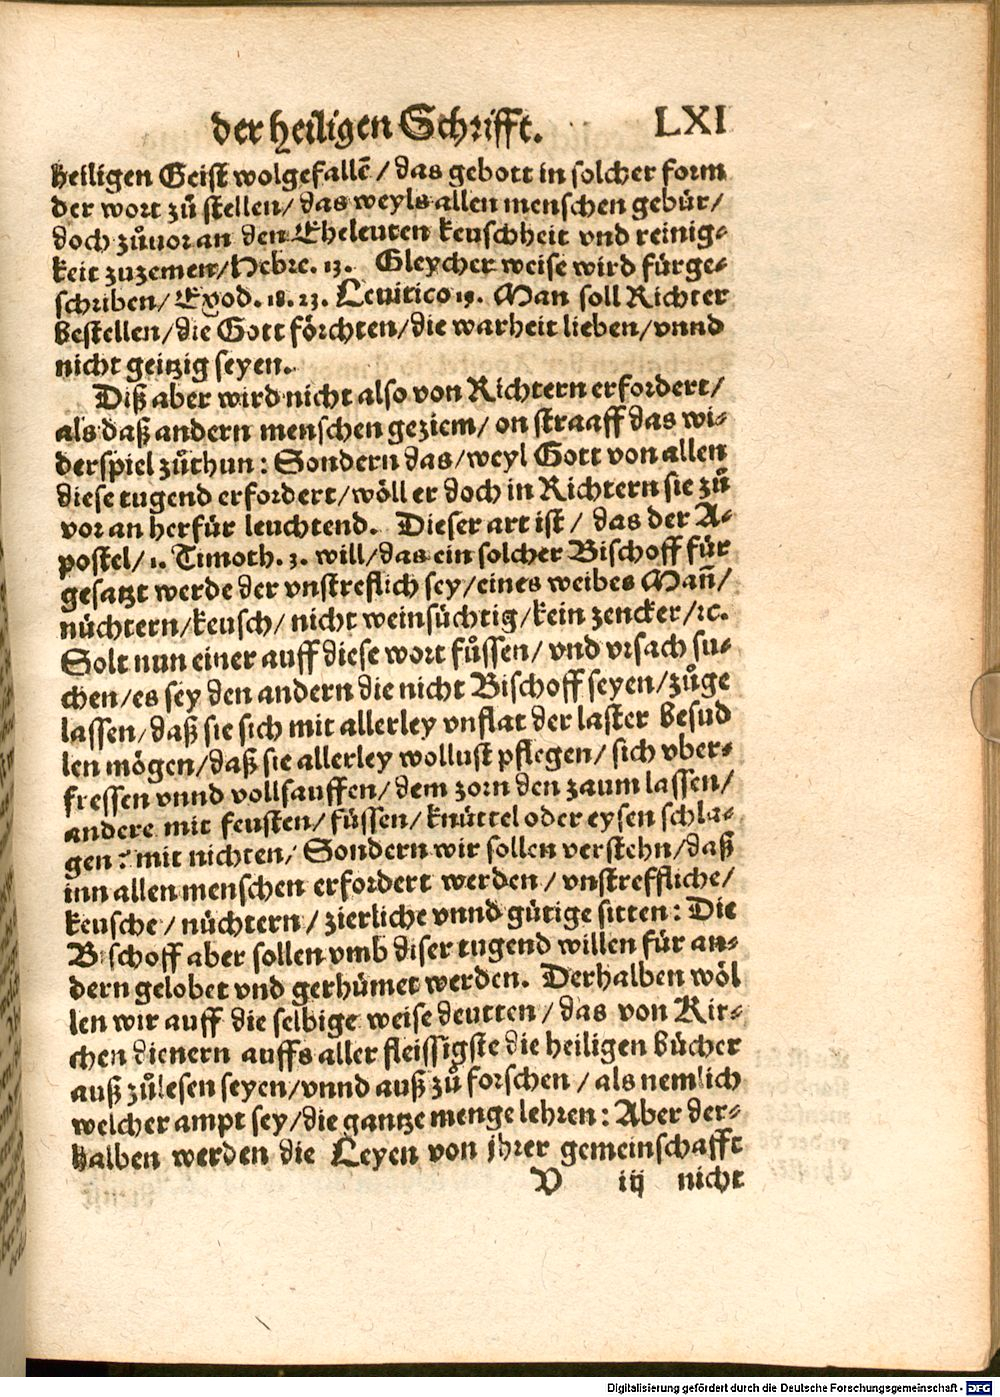 der heiligen Schrifft. LXI
heiligen Geist wolgefallẽ / das gebott in solcher form
der wort zů stellen / das weyls allen menschen gebür /
doch zůuor an den Eheleuten keuschheit vnd reinig⸗
keit zuzemen / Hebre. 13. Gleycher weise wird fürge⸗
schriben / Exod. 18. 23. Leuitico 19. Man soll Richter
bestellen / die Gott förchten / die warheit lieben / vnnd
nicht geitzig seyen.
Diß aber wird nicht also von Richtern erfordert /
als daß andern menschen geziem / on straaff das wi⸗
derspiel zůthun : Sondern das / weyl Gott von allen
diese tugend erfordert / wöll er doch in Richtern sie zů
vor an herfür leuchtend. Dieser art ist / das der A⸗
postel / 1. Timoth. 3. will / das ein solcher Bischoff für
gesatzt werde der vnstreflich sey / eines weibes Mañ /
nüchtern / keusch / nicht weinsüchtig / kein zencker / ꝛc.
Solt nun einer auff diese wort fůssen / vnd vrsach su⸗
chen / es sey den andern die nicht Bischoff seyen / zůge
lassen / daß sie sich mit allerley vnflat der laster besud
len mögen / daß sie allerley wollust pflegen / sich vber⸗
fressen vnnd vollsauffen / dem zorn den zaum lassen /
andere mit feusten / füssen / knüttel oder eysen schla⸗
gen : mit nichten / Sondern wir sollen verstehn / daß
inn allen menschen erfordert werden / vnstreffliche /
keusche / nüchtern / zierliche vnnd gütige sitten : Die
Bischoff aber sollen vmb diser tugend willen für an⸗
dern gelobet vnd gerhümet werden. Derhalben wöl
len wir auff die selbige weise deutten / das von Kir⸗
chen dienern auffs aller fleissigste die heiligen bücher
auß zůlesen seyen / vnnd auß zů forschen / als nemlich
welcher ampt sey / die gantze menge lehren : Aber der⸗
halben werden die Leyen von jhrer gemeinschafft
V iij nicht
Digitalisierung gefördert durch die Deutsche Forschungsgemeinschaft - DFG